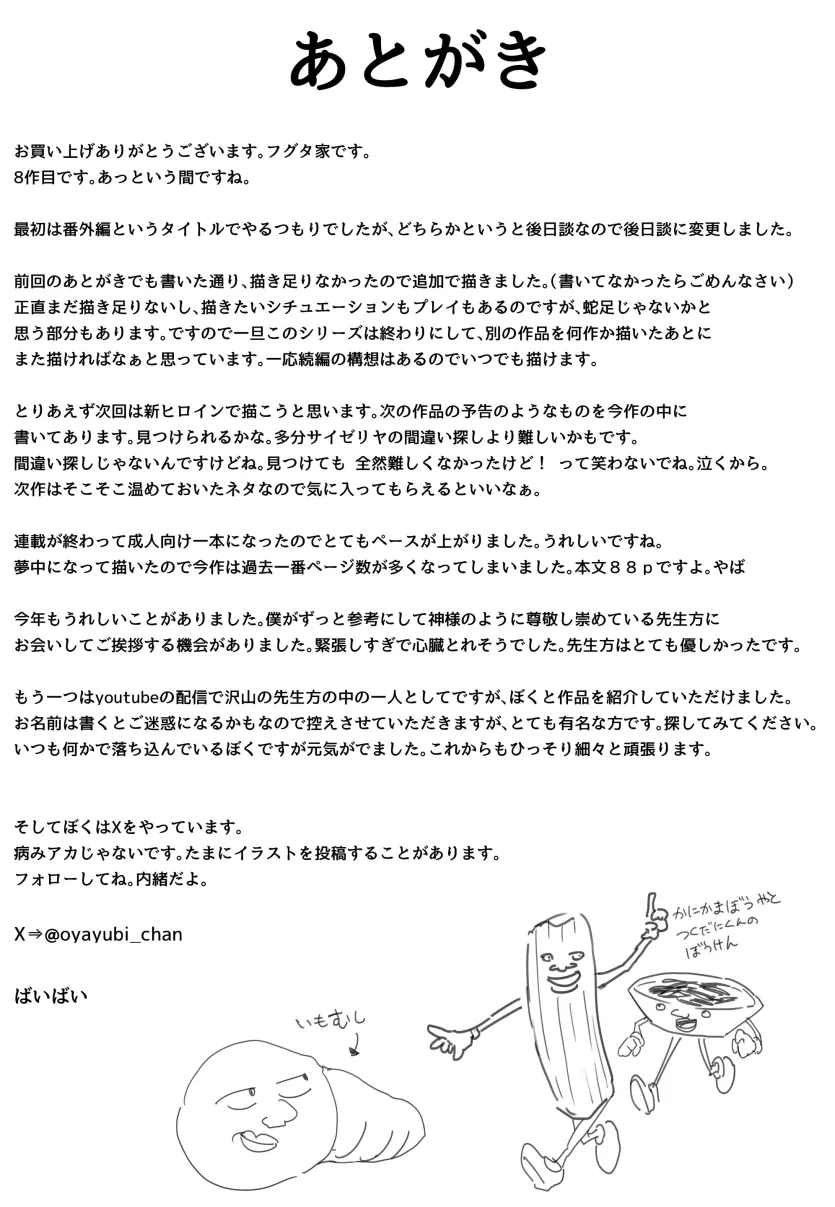 あとがき
お買い上げありがとうございます。フグタ家です。
8作目です。あっという間ですね。
最初は番外編というタイトルでやるつもりでしたが、どちらかというと後日談なので後日談に変更しました。
前回のあとがきでも書いた通り、描き足りなかったので追加で描きました。（書いてなかったらごめんなさい）
正直まだ描き足りないし、描きたいシチュエーションもプレイもあるのですが、蛇足じゃないかと
思う部分もあります。ですので一旦このシリーズは終わりにして、別の作品を何作か描いたあとに
また描ければなぁと思っています。一応続編の構想はあるのでいつでも描けます。
とりあえず次回は新ヒロインで描こうと思います。次の作品の予告のようなものを今作の中に
書いてあります。見つけられるかな。多分サイゼリヤの間違い探しより難しいかもです。
間違い探しじゃないんですけどね。見つけても 全然難しくなかったけど！ って笑わないでね。泣くから。
次作はそこそこ温めておいたネタなので気に入ってもらえるといいなぁ。
連載が終わって成人向け一本になったのでとてもペースが上がりました。うれしいですね。
夢中になって描いたので今作は過去一番ページ数が多くなってしまいました。本文８８ｐですよ。やば
今年もうれしいことがありました。僕がずっと参考にして神様のように尊敬し崇めている先生方に
お会いしてご挨拶する機会がありました。緊張しすぎで心臓とれそうでした。先生方はとても優しかったです。
もう一つはyoutubeの配信で沢山の先生方の中の一人としてですが、ぼくと作品を紹介していただけました。
お名前は書くとご迷惑になるかもなので控えさせていただきますが、とても有名な方です。探してみてください。
いつも何かで落ち込んでいるぼくですが元気がでました。これからもひっそり細々と頑張ります。
そしてぼくはXをやっています。
病みアカじゃないです。たまにイラストを投稿することがあります。
フォローしてね。内緒だよ。
X⇒@oyayubi_chan
ばいばい
いもむし
かにかまぼうやと
つくだにくんの
ぼうけん